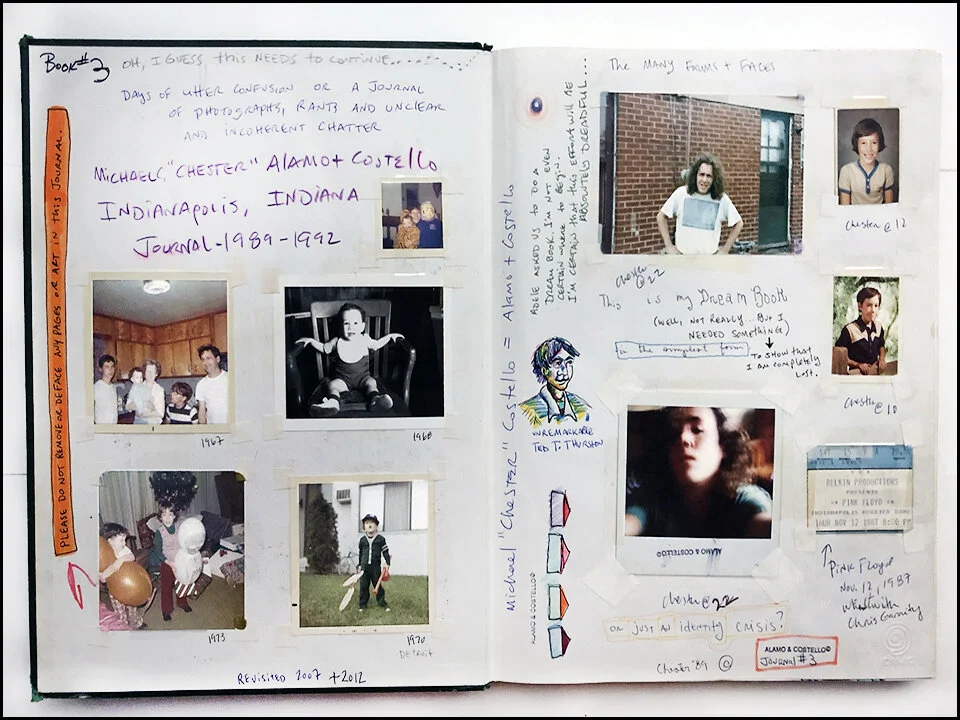 Book #3
OH, I GUESS this NEEDS to CONTINUE...
DAYS OF UTTER CONFUSION OR A JOURNAL
OF PHOTOGRAPHS, RANTS AND UNCLEAR
AND INCOHERENT CHATTER
MICHAEL "CHESTER" ALAMO + COSTELLO
INDIANAPOLIS, INDIANA
JOURNAL - 1989-1992
PLEASE DO NOT REMOVE OR DEFACE ANY PAGES OR ART IN THIS JOURNAL.
1967
1968
1973
1970
DETROIT
REVISITED 2007 + 2012
Michael "Chester" Costello = Alamo + Costello
ADELE ASKED US TO DO A
DREAM BOOK. I'M NOT EVEN
CERTAIN WHERE TO BEGIN.
I'M CERTAIN THAT THIS EFFORT WILL BE
ABSOLUTELY DREADFUL...
The MANY FORMS + FACES
Chester
@ 22
Chester @ 12
This is my Dream Book
(WELL, NOT REALLY... BUT I
NEEDED SOMETHING)
in the simplest form
TO SHOW THAT
I AM COMPLETELY
LOST.
Chester @ 10
UNREMARKABLE
TED T. THURSTON
ALAMO & COSTELLO©
ALAMO & COSTELLO©
Chester @ 22
OR JUST AN IDENTITY CRISIS?
Chester '89 ©
ALAMO & COSTELLO©
JOURNAL #3
BELKIN PRODUCTIONS
PRESENTS
PINK FLOYD
THUR NOV 12 1987 8:00 PM
PINK FLOYD
NOV. 12, 1987
Went with
Chris